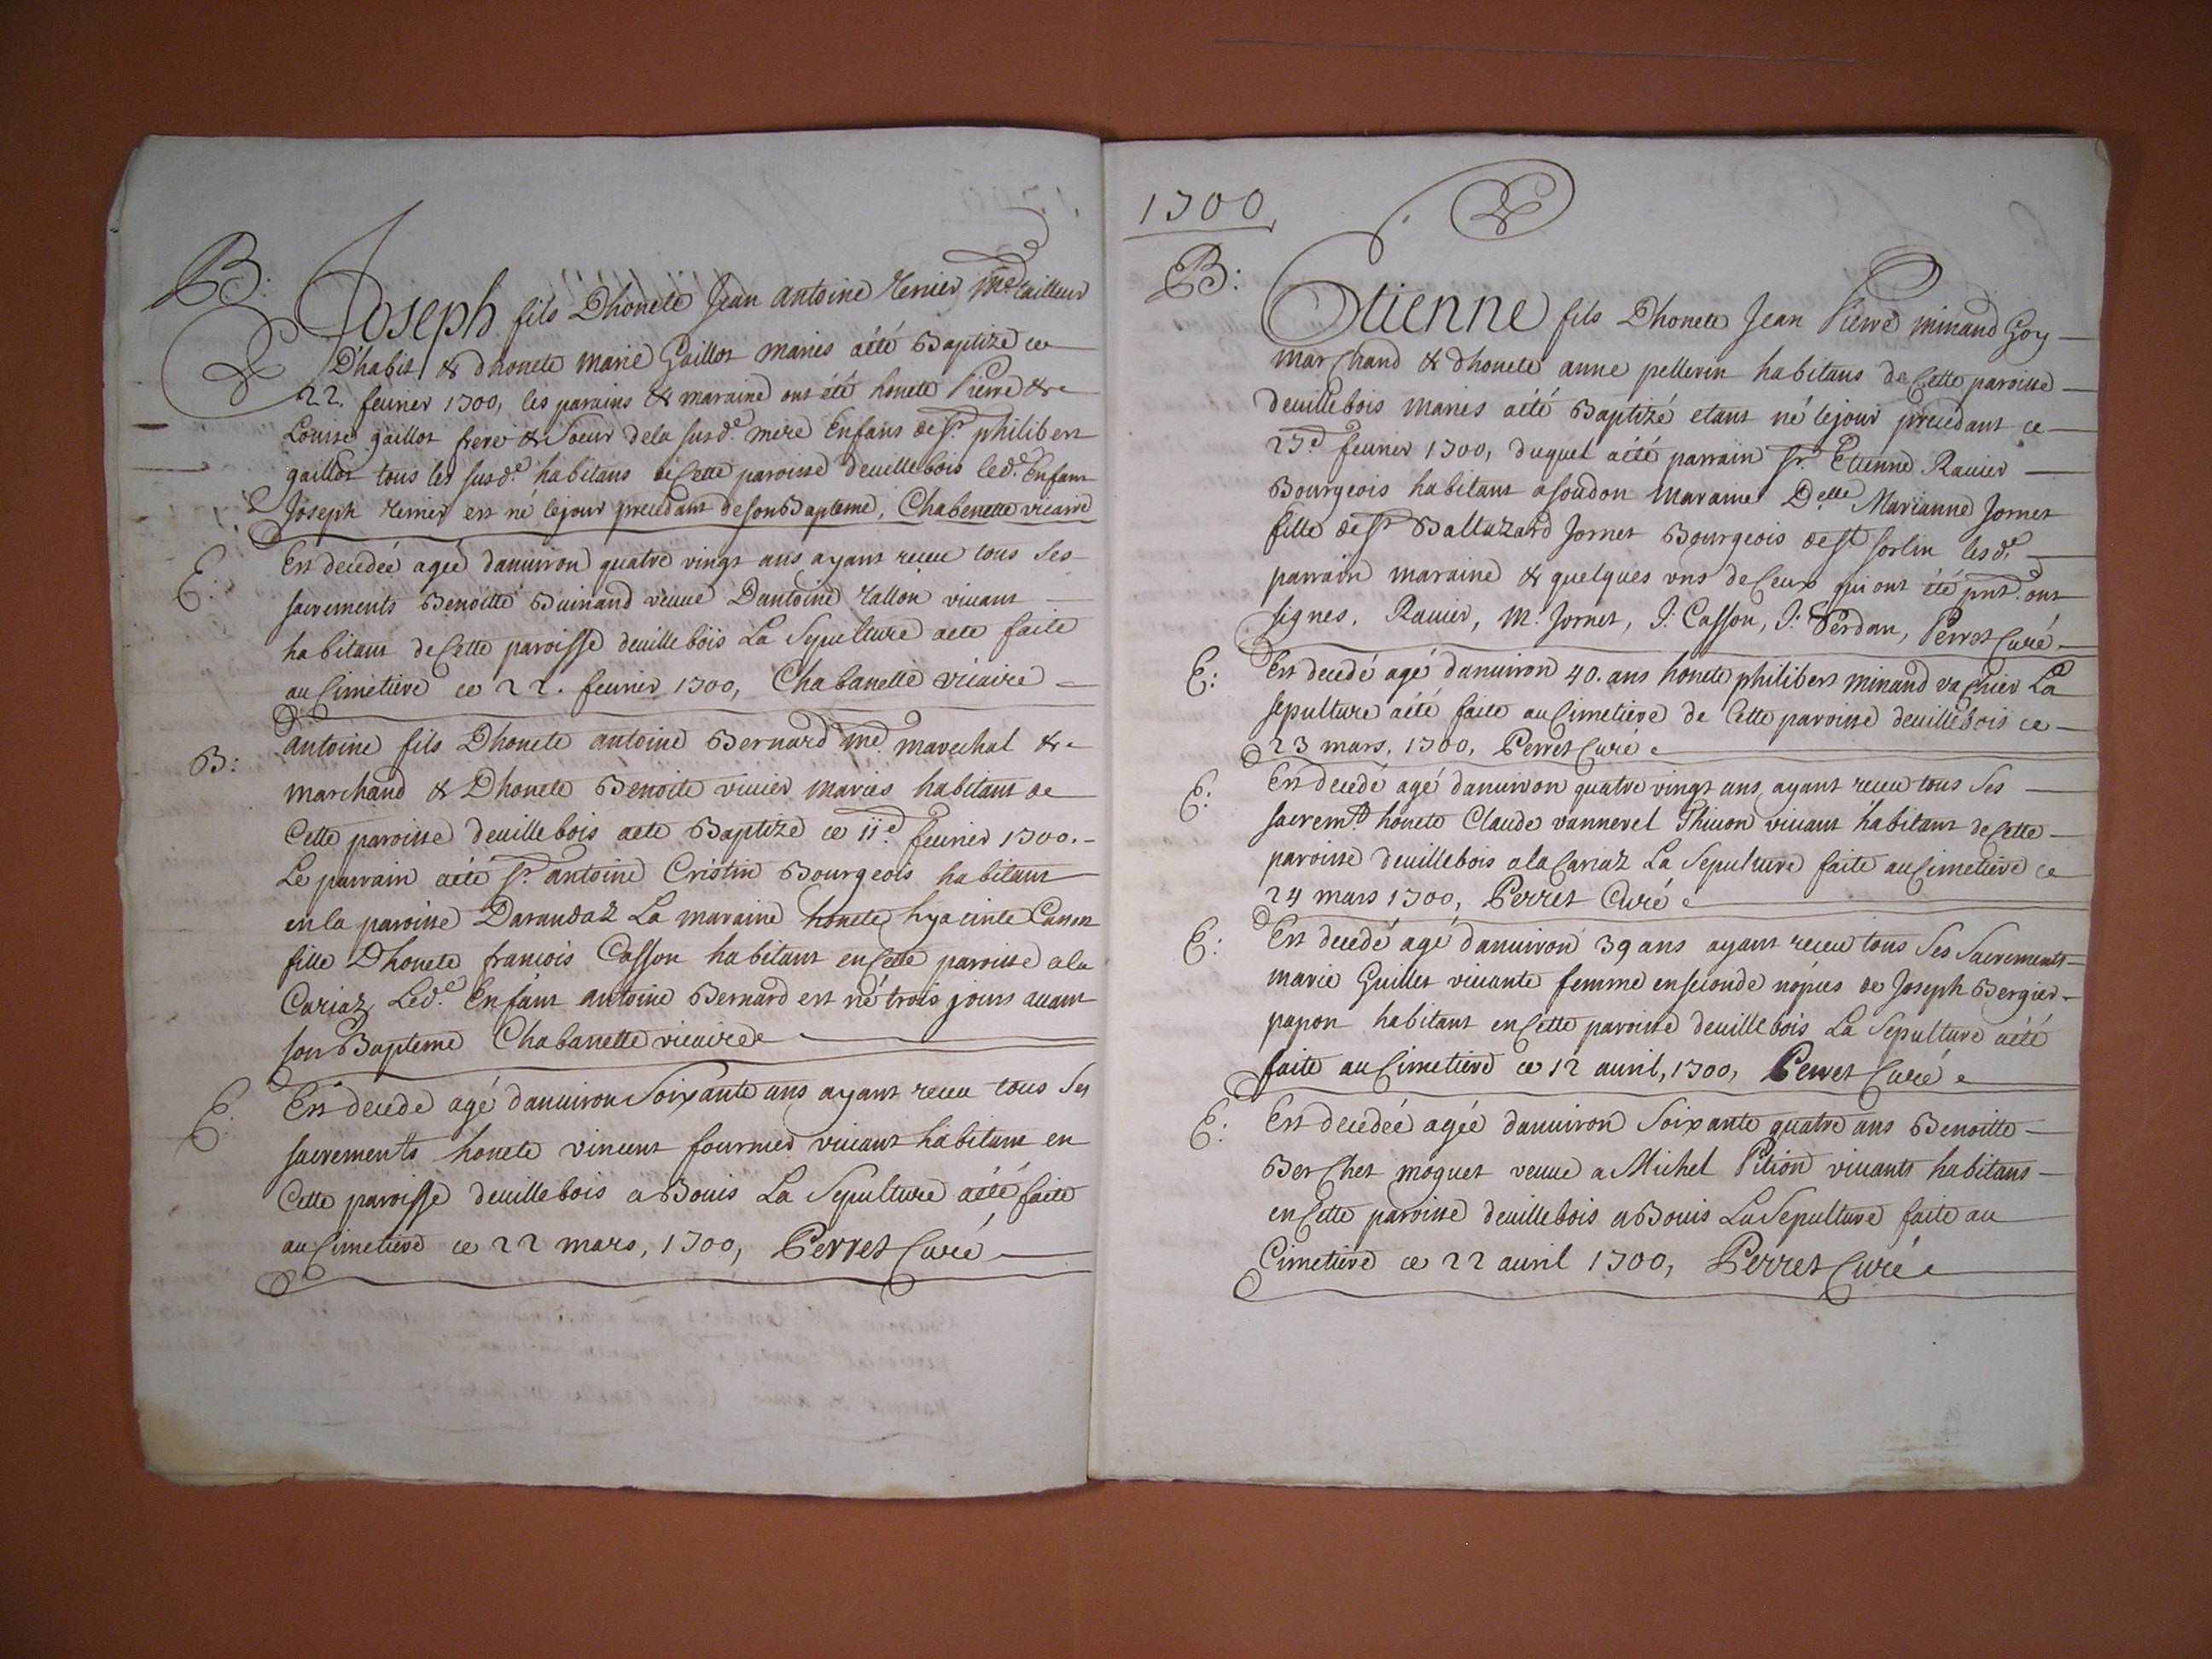 B:
Joseph fils Dhonete Jean antoine Me tailleur
D'habit & dhonete marie Gaillot maries aété Baptizé ce
22. feurier 1700, les parains & maraine ont été honete Pierre &
Louise gaillot frere & Soeur dela susd.e mere Enfans de Sr. philibert
gaillot tous les susd.e habitans de Cette paroisse deuillebois led.e Enfant
Joseph est né lejour precedant deson Bapteme, Chabenette vicaire
E:
Est decedéé agéé danuiron quatre vingt ans ayant receu tous ses
sacrements Benoitte Buinand veuue Dantoine viuant
habitant de Cette paroisse deuillebois La Sepulture aete faite
au Cimetiere ce 22. feurier 1700, Chabanette vicaire
B:
antoine fils Dhonete antoine Bernard me. marechal &
marchand & Dhonete Benoite viuier maries habitant de
Cette paroisse deuillebois aete Baptizé ce 11e. feurier 1700.
Le parrain aété Sr. antoine Cristin Bourgeois habitant
en la paroisse Darandaz La maraine honete hyacinte Casson
fille Dhonete francois Casson habitant en Cette paroisse ala
Cariaz Led.e Enfant antoine Bernard est né trois jours auant
son Bapteme Chabanette vicaire
E:
Est decede agé danuiron Soixante ans ayant receu tous ses
sacrements honete vincent fournier viuant habitant en
Cette paroisse deuillebois a Bouis La Sepulture aété faite
au Cimetiere ce 22 mars, 1700, Perret Curé
1700
B:
Etienne fils Dhonete Jean Pierre minand Goy
marchand & dhonete anne pellerin habitans de Cette paroisse
deuillebois maries aété Baptizé etant né lejour precedant ce
27e feurier 1700, duquel aété parrain Sr. Etienne Rauier
Bourgeois habitant a soudon maraine D.elle Marianne Jornet
fille de Sr Baltazard Jornet Bourgeois de St sorlin lesd.e
parrain maraine & quelques vns de Ceux qui ont été pnt. ont
signes, Rauier, M. Jornet, J: Casson, J: Perdan, Perret Curé
E:
Est decedé agé danuiron 40. ans honete philibert minand vachier La
sepulture aété faite au Cimetiere de Cette paroisse deuillebois ce
23 mars, 1700, Perret Curé
E:
Est decedé agé danuiron quatre vingt ans ayant receu tous ses
sacrem.ts honete Claude vannerel Thiuon viuant habitant de Cette
paroisse deuillebois ala Cariaz La Sepulture faite au Cimetiere ce
24 mars 1700, Perret Curé
E:
Est decedé agé danuiron 39 ans ayant receu tous Ses Sacrements
marie Guillet viuante femme enseconde nópces de Joseph Bergier
papon habitant en Cette paroisse deuillebois La Sepulture aété
faite au Cimetiere ce 12 auril, 1700, Perret Curé
E:
Est decedéé agéé danuiron Soixante quatre ans Benoitte
Berchet moguet veuue a Michel Pition viuants habitans
en Cette paroisse deuillebois a Bouis La Sepulture faite au
Cimetiere ce 22 auril 1700, Perret Curé